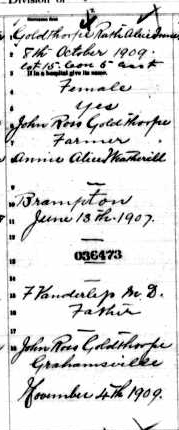 Division of
Goldthorpe Ruth Alice
8th October 1909.
Lot 15. Con 5 east
If in a hospital give its name.
Female
Yes
John Ross Goldthorpe
Farmer
Annie Alice Weatherill
—
Brampton
June 13th 1907.
—
036473
—
F Vanderlip M. D.
Father
—
John Ross Goldthorpe
Grahamsville
November 4th 1909.